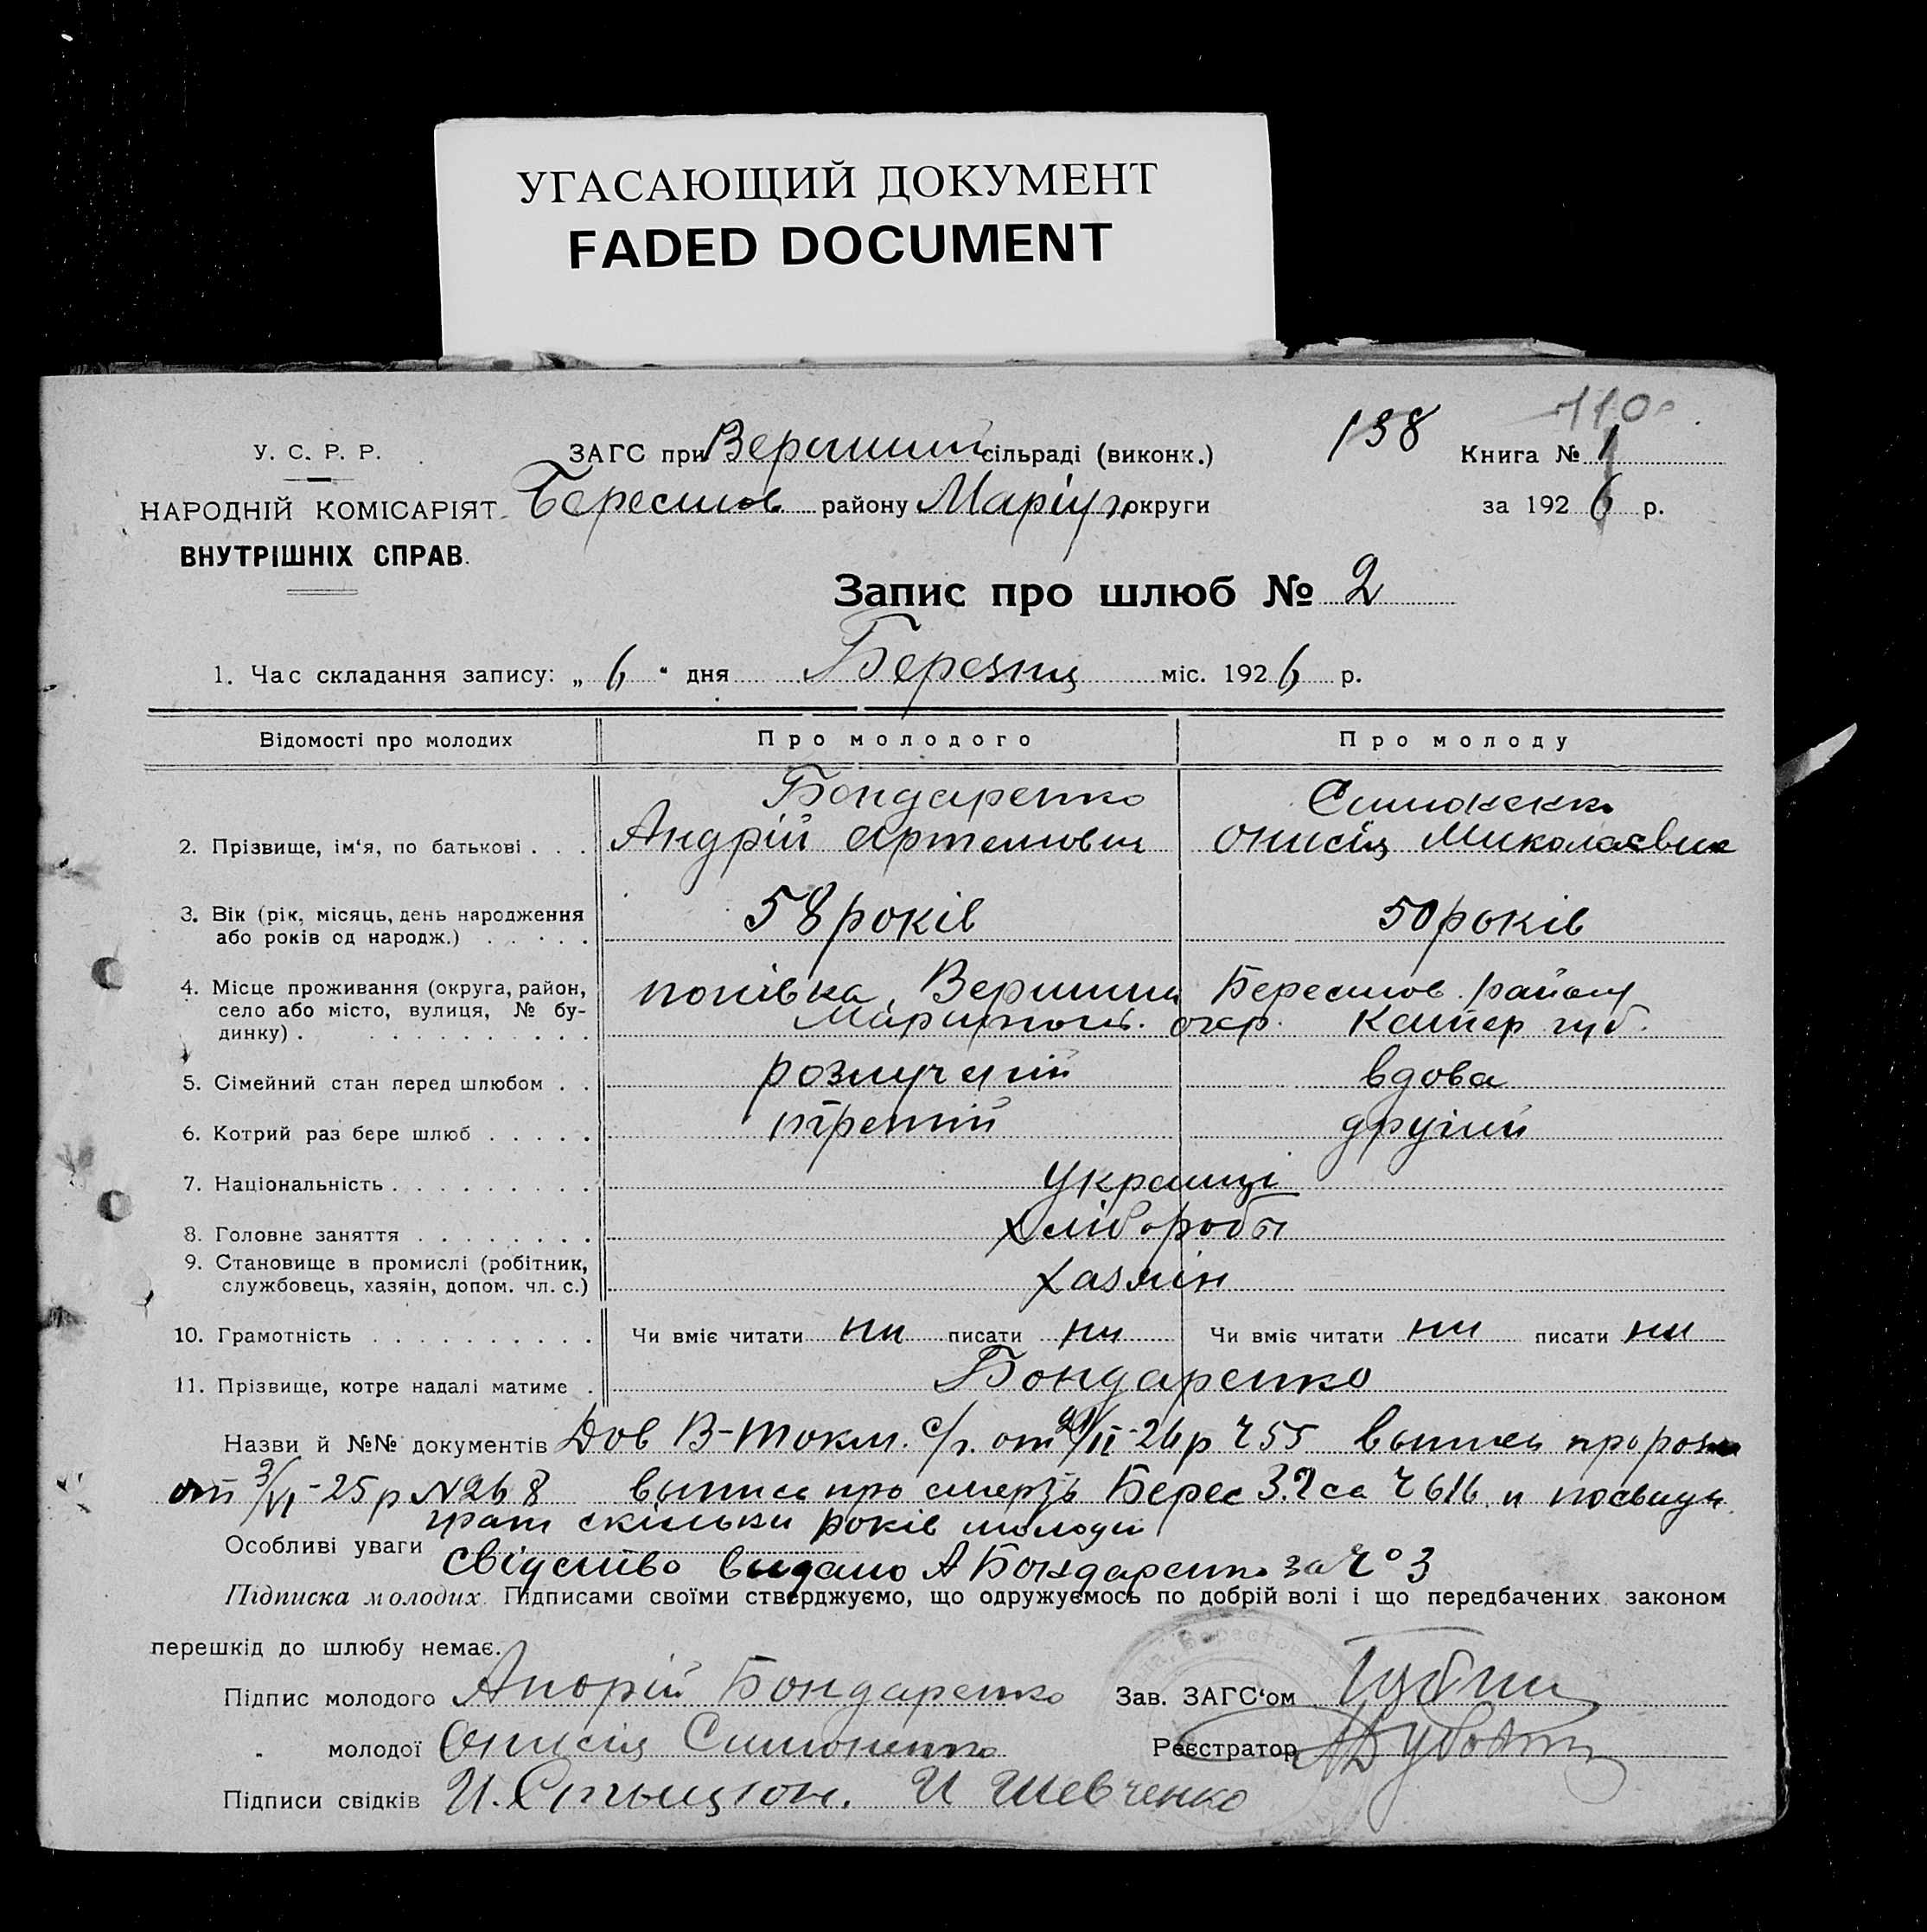 УГАСАЮЩИЙ ДОКУМЕНТ
FADED DOCUMENT
110
У. С. Р. Р.
НАРОДНІЙ КОМІСАРІЯТ
ВНУТРІШНІХ СПРАВ.
ЗАГС при сільраді (виконк.)
138
Книга № 1
Берестов району Маріуп. округи
за 1926 р.
Запис про шлюб № 2
1. Час складання запису: „ 6 “ дня Березня міс. 1926 р.
Відомості про молодих Про молодого Про молоду
Бондаренко Симоненко
2. Прізвище, ім‘я, по батькові . . . Андрій Артемович Онисія Миколаєвна
3. Вік (рік, місяць, день народження
або років од народж.) . . . . . 58 років 50 років
4. Місце проживання (округа, район,
село або місто, вулиця, № бу-
динку) . . . . . . . . . . .
Берестов. району
окр. губ.
5. Сімейний стан перед шлюбом . . розлучений вдова
6. Котрий раз бере шлюб . . . . . третій другий
7. Національність . . . . . . . . . Українці
8. Головне заняття . . . . . . . . Хлібороби
9. Становище в промислі (робітник,
службовець, хазяін, допом. чл. с.) Хазяін
10. Грамотність . . . . . . . . . . Чи вміє читати ни писати ни Чи вміє читати ни писати ни
11. Прізвище, котре надалі матиме . Бондаренко
Назви й №№ документів Дов В-Токм. с/р. от -26 р Ч 55 про
от 3/VI-25 р № 268 про Берес Ч 616 и
скільки років молодій
Особливі уваги
видано А Бондаренко за Ч° 3
Підписка молодих. Підписами своїми стверджуємо, що одружуємось по добрій волі і що передбачених законом
перешкід до шлюбу немає.
Підпис молодого Андрій Бондаренко Зав. ЗАГС‘ом
„ молодої Онисія Симоненко Реєстратор
Підписи свідків И Шевченко